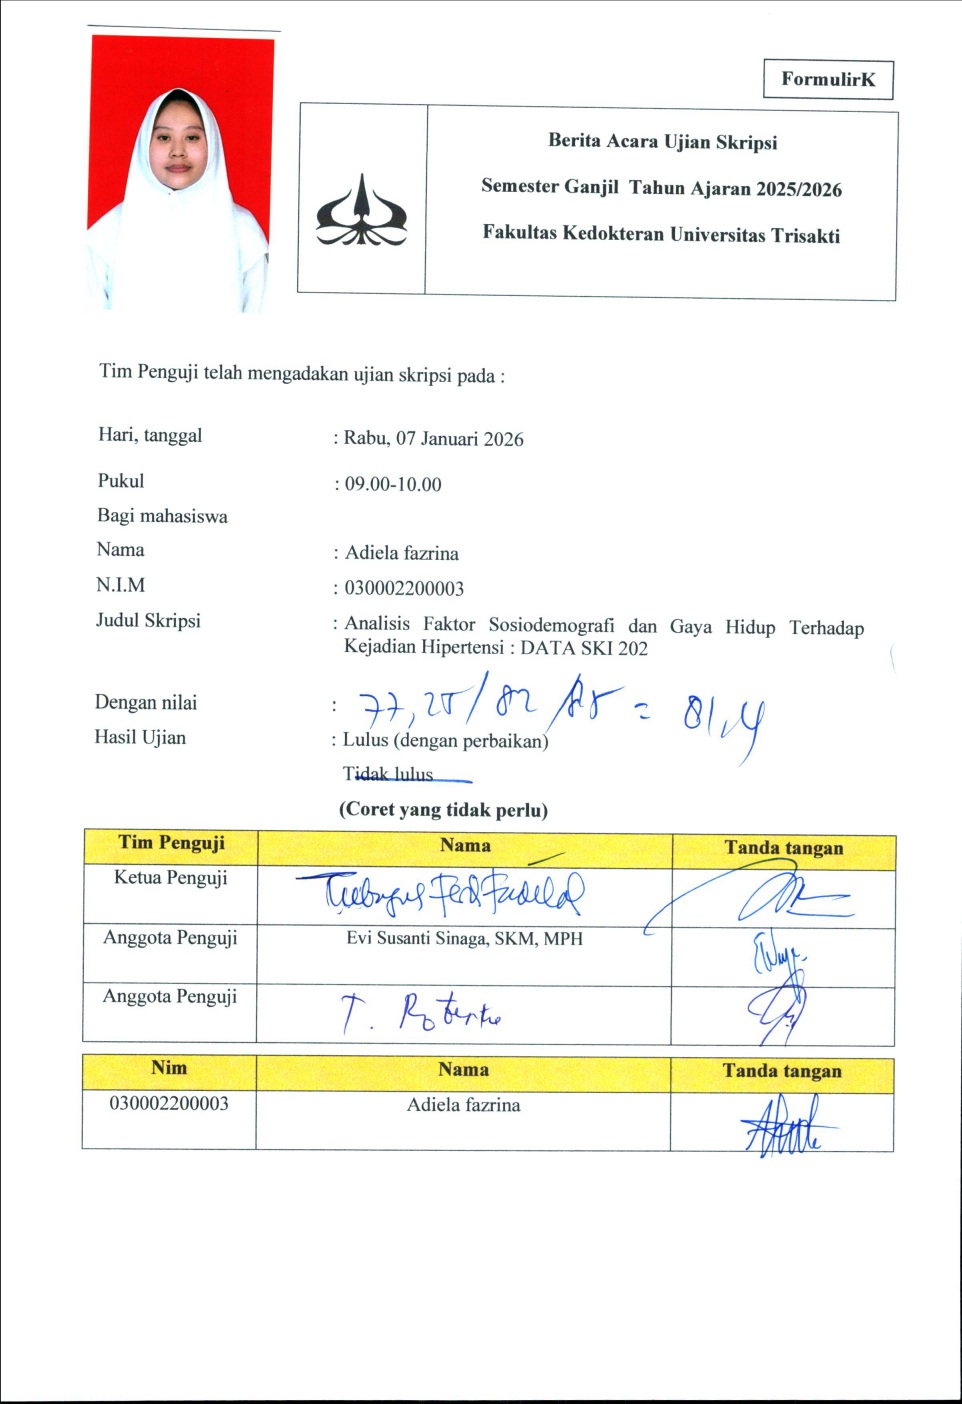 FormulirK
Berita Acara Ujian Skripsi
Semester Ganjil Tahun Ajaran 2025/2026
Fakultas Kedokteran Universitas Trisakti
Tim Penguji telah mengadakan ujian skripsi pada :
Hari, tanggal : Rabu, 07 Januari 2026
Pukul : 09.00-10.00
Bagi mahasiswa
Nama : Adiela fazrina
N.I.M : 030002200003
Judul Skripsi : Analisis Faktor Sosiodemografi dan Gaya Hidup Terhadap
Kejadian Hipertensi : DATA SKI 202
Dengan nilai : 77,25/82 /85 = 81,4
Hasil Ujian : Lulus (dengan perbaikan)
Tidak lulus
(Coret yang tidak perlu)
Tim Penguji Nama Tanda tangan
Ketua Penguji Tubagus Ferdi Fadilah
Anggota Penguji Evi Susanti Sinaga, SKM, MPH
Anggota Penguji T.
Nim Nama Tanda tangan
030002200003 Adiela fazrina